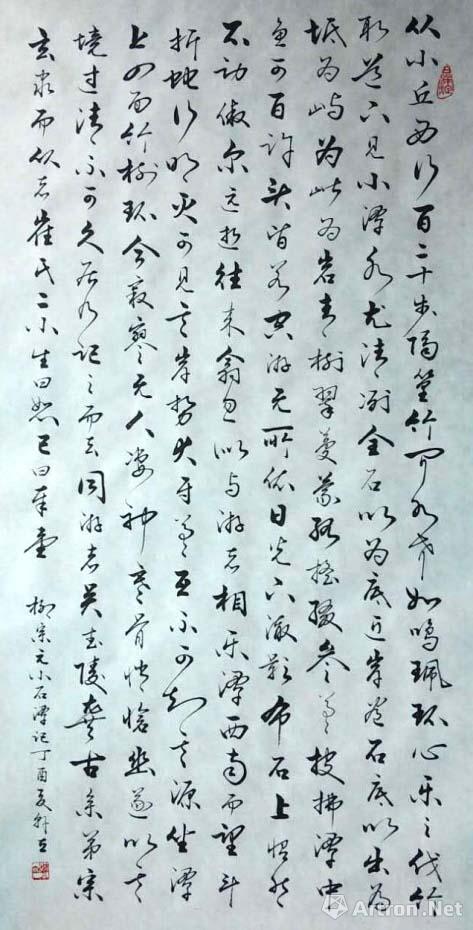 从小丘西行百二十步隔篁竹闻水声如鸣珮环心乐之伐竹
取道下见小潭水尤清冽全石以为底近岸卷石底以出为
坻为屿为嵁为岩青树翠蔓蒙络摇缀参差披拂潭中
鱼可百许头皆若空游无所依日光下澈影布石上怡然
不动俶尔远逝往来翕忽似与游者相乐潭西南而望斗
折蛇行明灭可见其岸势犬牙差互不可知其源坐潭
上四面竹树环合寂寥无人凄神寒骨悄怆幽邃以其
境过清不可久居乃记之而去同游者吴武陵龚古余弟宗
玄隶而从者崔氏二小生曰恕己曰奉壹
柳宗元小石潭记丁酉夏
Artron.Net